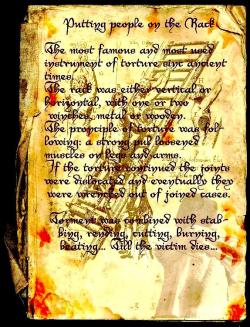 Putting people on the Rack
The most famous and most used
instrument of torture sinc ancient
times.
The rack was either vertical or
horizontal, with one or two
winches, metal or wooden.
The pronciple of torture was fol-
lowing: a strong pul looseyed
muscles on legs and arms.
If the torture continued the joints
were dislocated and eventyally they
were wrenched out of joined cases.
Torment was combined with stab-
bing, rending, cutting, burning,
beating... Till the victim dies...